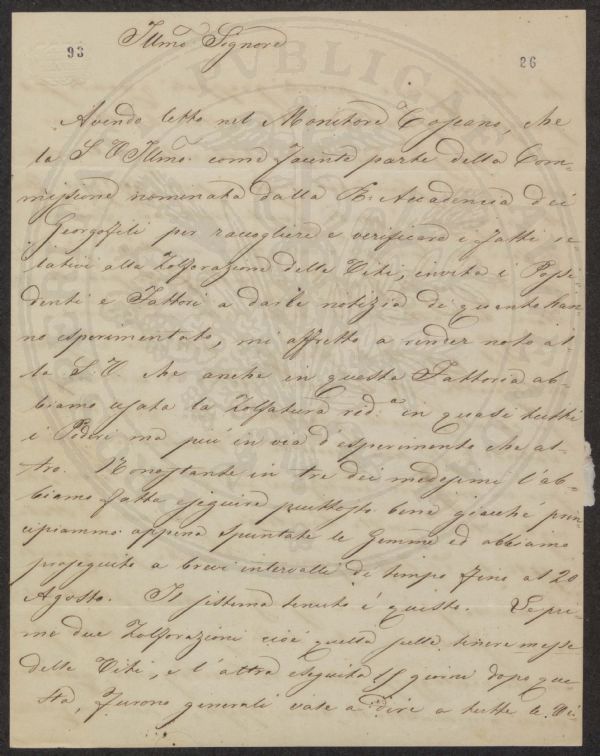 93
Illmo Signore
26
Avendo letto nel Monitore Toscano, che
la S. V. Illma. come facente parte della Com-
missione nominata dalla R. Accademia dei
Georgofili per raccogliere e verificare i fatti re
lativi alla Zolforazione delle Viti, invita i Possi
denti e Fattori a darle notizia di quanto han-
no esperimentato, mi affretto a render noto al-
la S. V. che anche in questa Fattoria ab-
biamo usata la Zolfatura in quasi tutti
i Poderi ma più in via d'esperimento che al-
tro. Nonostante in tre dei medesimi l'ab-
biamo fatta eseguire piuttosto bene giacchè prin-
cipiammo appena spuntate le Gemme ed abbiamo
proseguito a brevi intervalli di tempo fino al 20
Agosto. Il sistema tenuto è questo. Le pri-
me due Zolforazioni cioè quella sulle tenere messe
delle Viti, e l'altra eseguita 15 giorni dopo que
sta, furono generali vale a dire a tutte le Vi-
PUBLICA